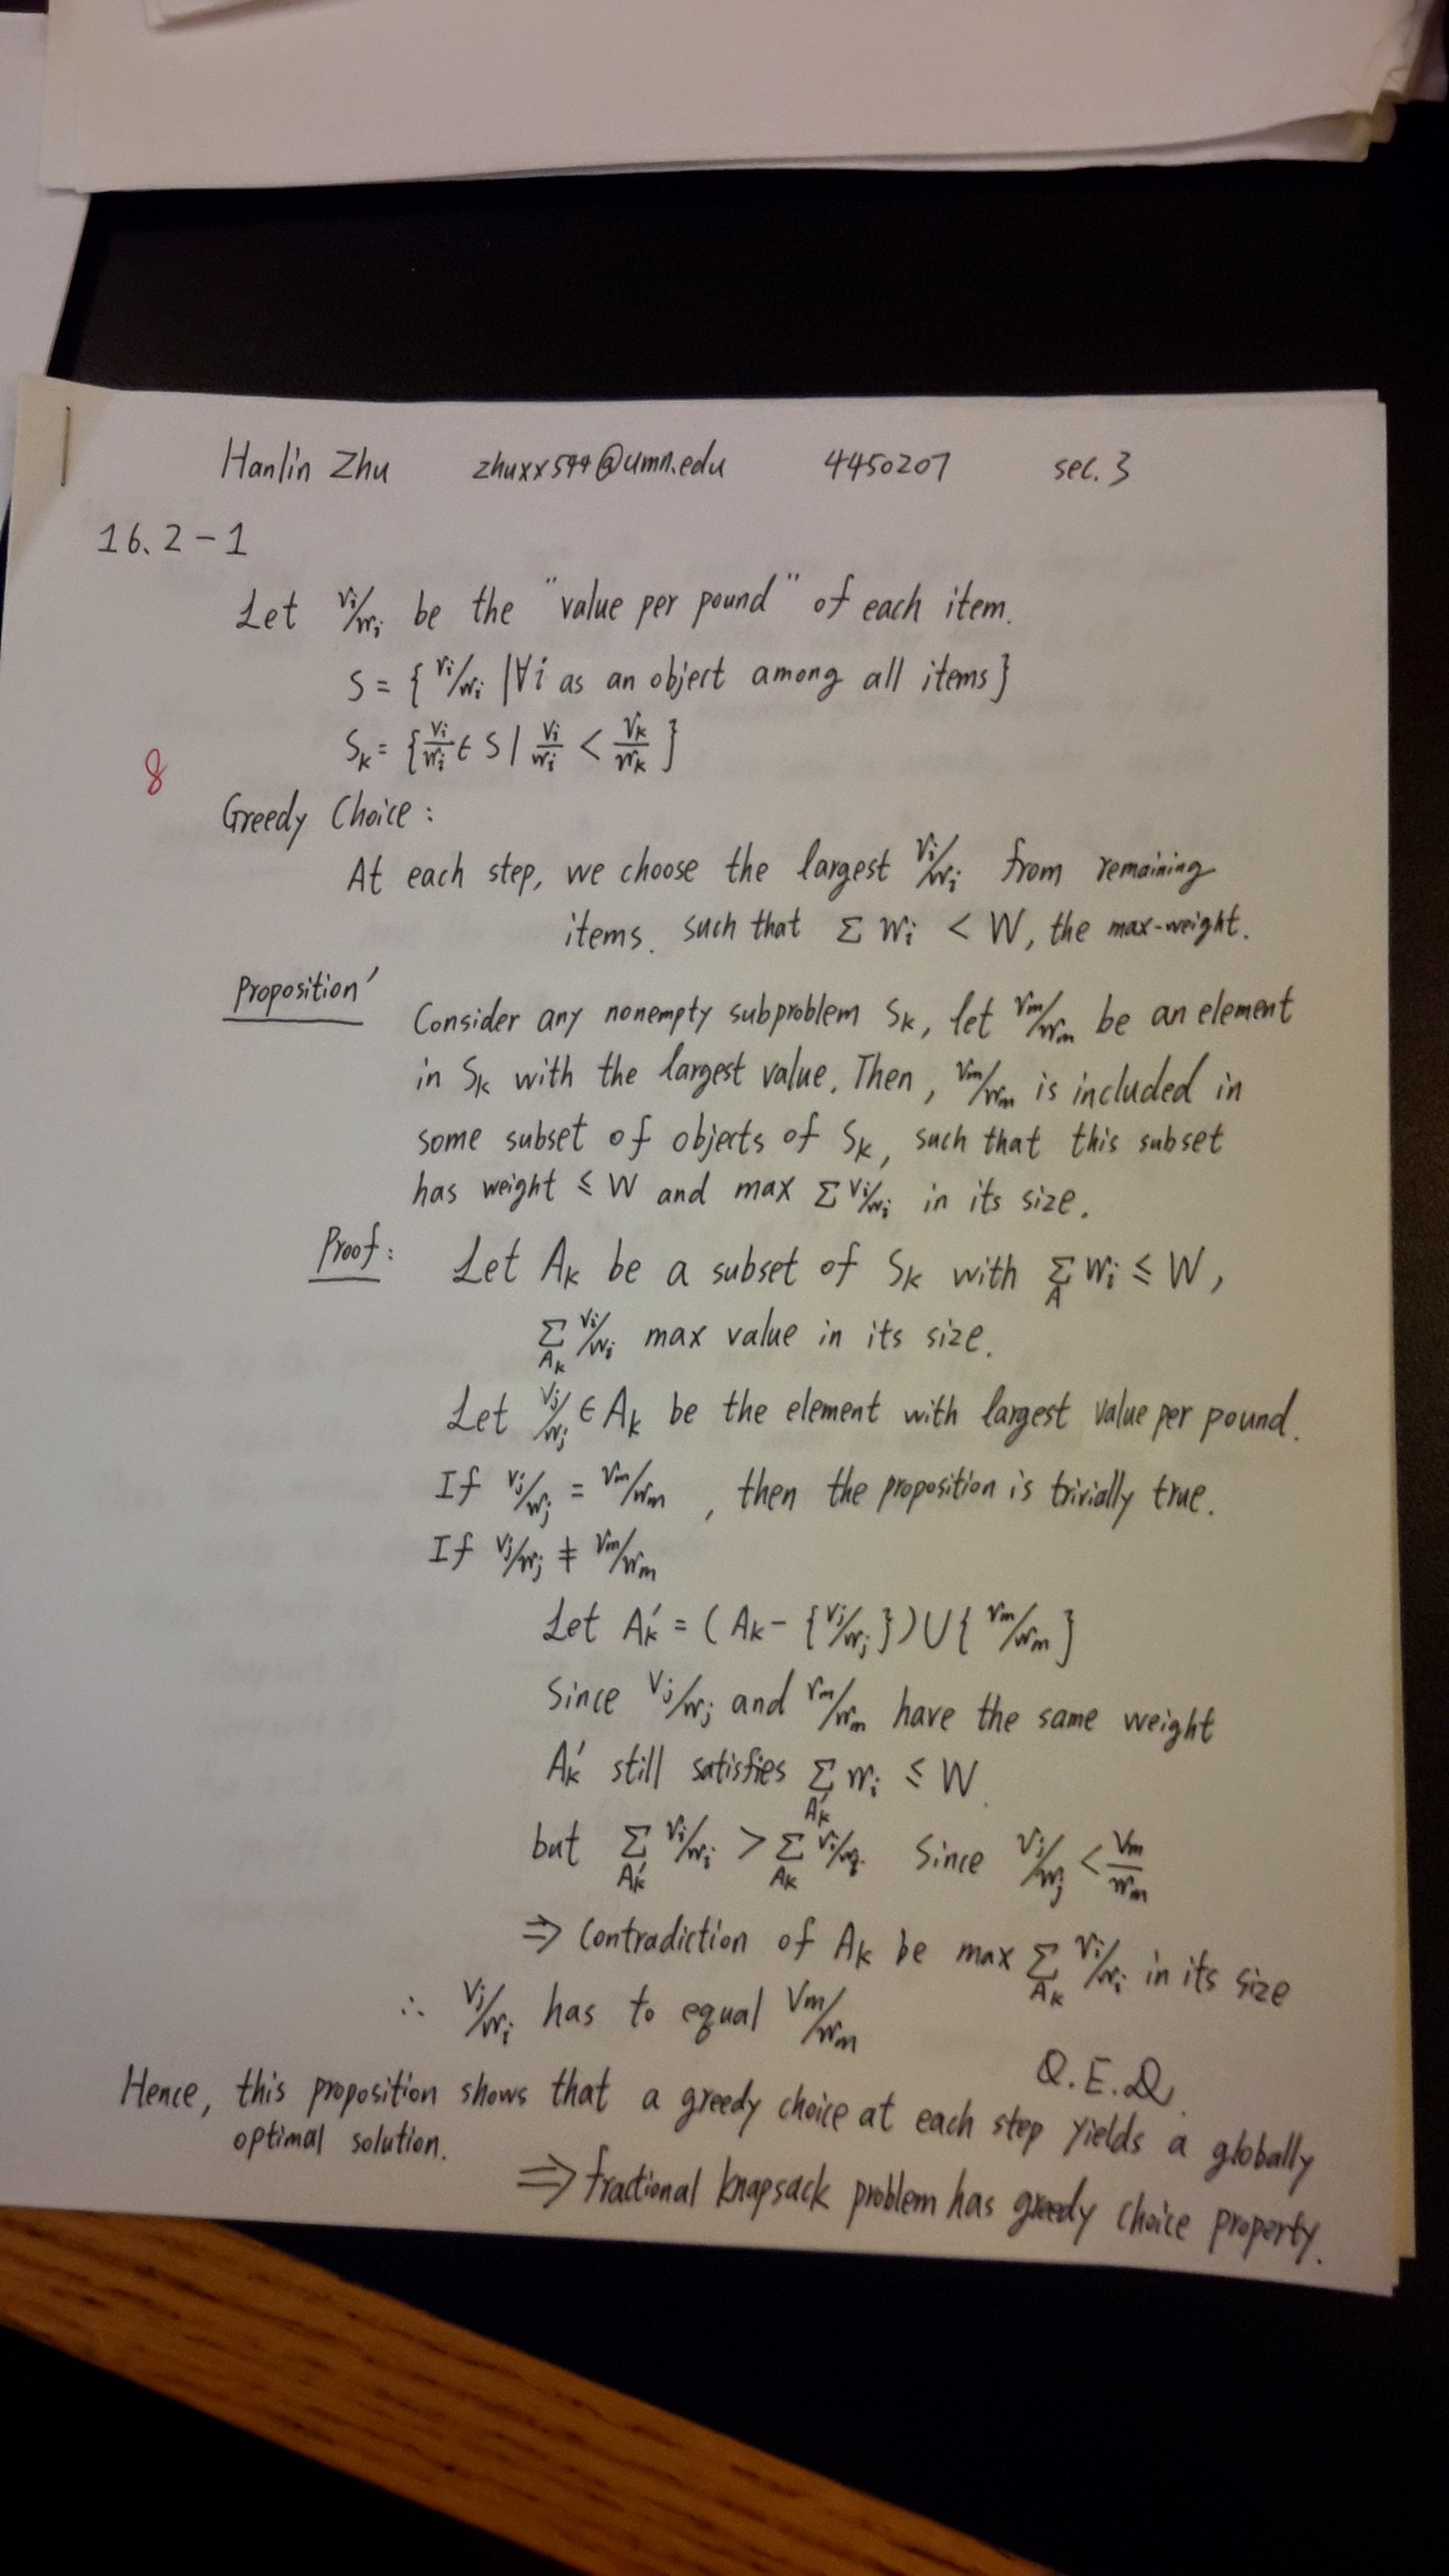 Hanlin Zhu zhuxx599@umn.edu 4450207 sec. 3
16.2-1
Let Vi/Wi be the "value per pound" of each item.
S = { Vi/Wi | ∀i as an object among all items }
Sk = { Vi/Wi ∈ S | Vi/Wi < Vk/Wk }
8
Greedy Choice :
At each step, we choose the largest Vi/Wi from remaining
items. such that Σ Wi < W, the max-weight.
Proposition'
Consider any nonempty subproblem Sk, let Vm/Wm be an element
in Sk with the largest value. Then, Vm/Wm is included in
some subset of objects of Sk, such that this subset
has weight ≤ W and max Σ Vi/Wi in its size.
Proof: Let Ak be a subset of Sk with Σ_A Wi ≤ W,
Σ_Ak Vi/Wi max value in its size.
Let Vj/Wj ∈ Ak be the element with largest value per pound.
If Vj/Wj = Vm/Wm , then the proposition is trivially true.
If Vj/Wj ≠ Vm/Wm
Let Ak' = ( Ak - {Vj/Wj}) ∪ { Vm/Wm }
Since Vj/Wj and Vm/Wm have the same weight
Ak' still satisfies Σ_Ak' Wi ≤ W.
but Σ_Ak' Vi/Wi > Σ_Ak Vi/Wi. Since Vj/Wj < Vm/Wm
⇒ Contradiction of Ak be max Σ_Ak Vi/Wi in its size
∴ Vj/Wi has to equal Vm/Wm
Q.E.D.
Hence, this proposition shows that a greedy choice at each step yields a globally
optimal solution.
⇒ fractional knapsack problem has greedy choice property.